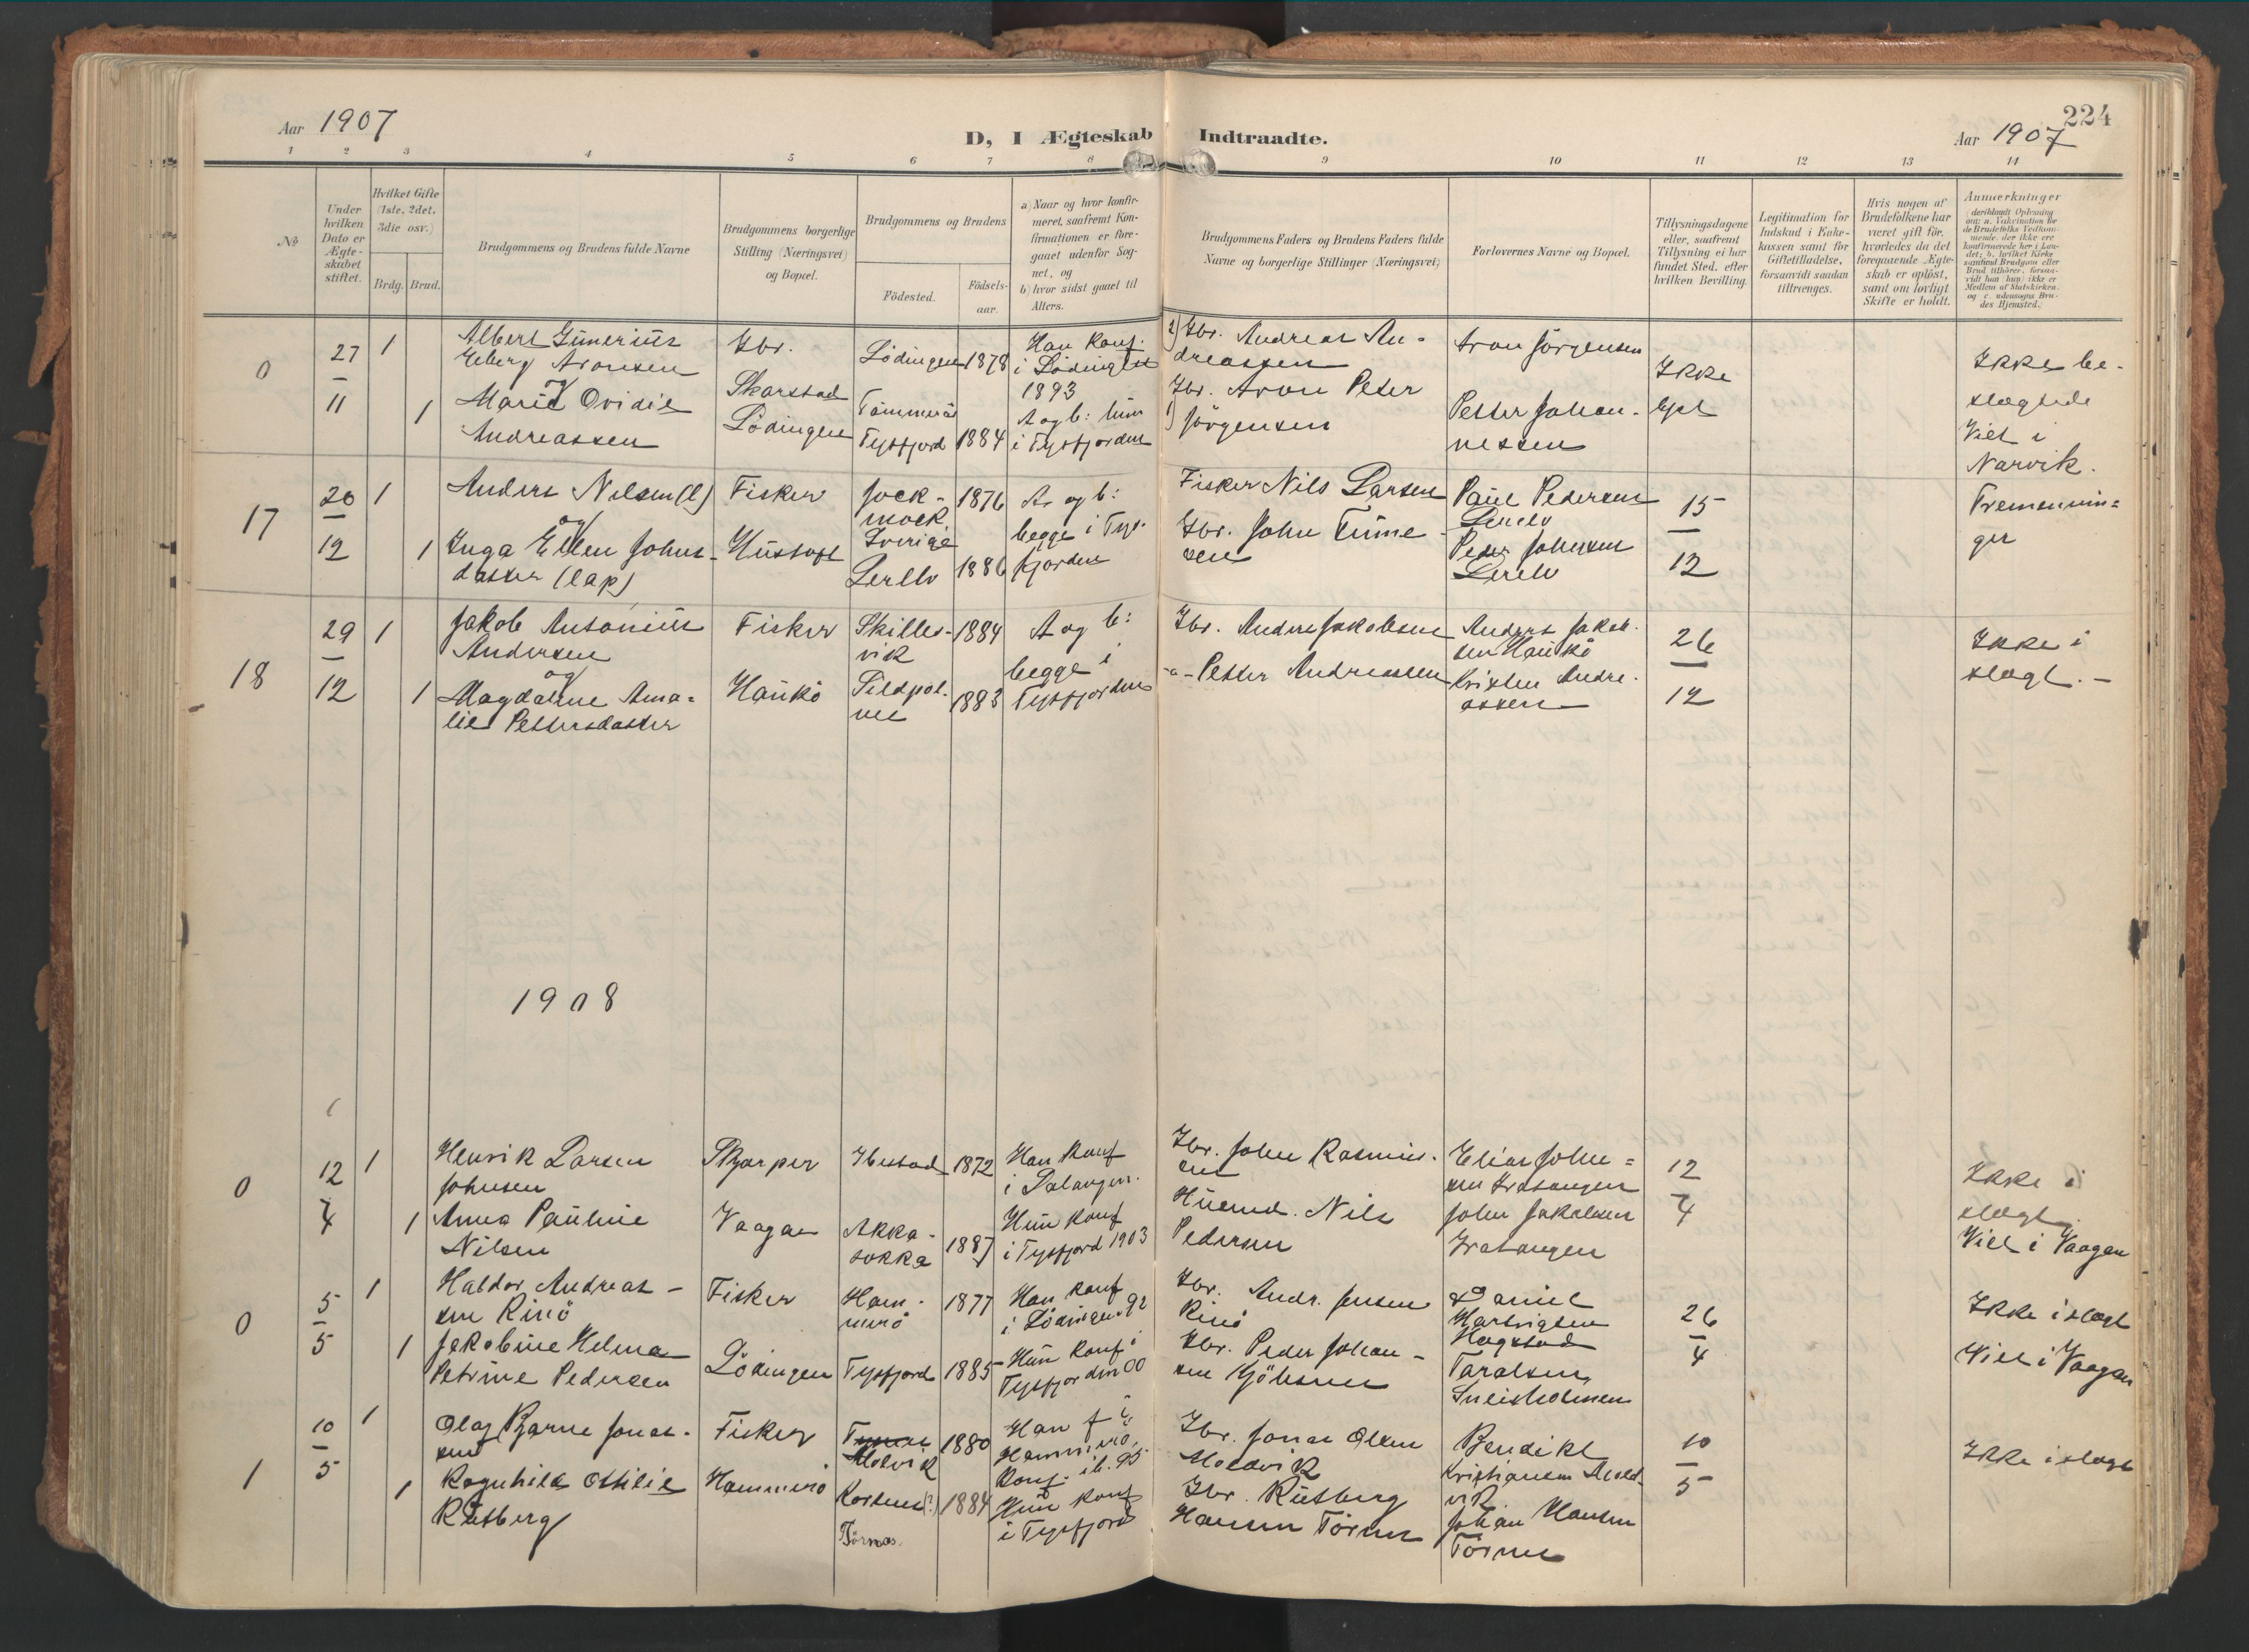 Aar 1907
D, I Ægteskab Indtraadte.
224
Aar 1907
1 2 3 4 5 6 7 8 9 10 11 12 13 14
No
Under hvilken Dato er Ægteskabet stiftet.
Hvilket Gifte (1ste, 2det, 3die osv.)
Brdg. Brud.
Brudgommens og Brudens fulde Navne
Brudgommens borgerlige Stilling (Næringsvei) og Bopæl.
Brudgommens og Brudens
Fødested.
Fødsels-aar.
a) Naar og hvor konfirmeret, saafremt Konfirmationen er foregaaet udenfor Sognet, og
b) hvor sidst gaaet til Alters.
Brudgommens Faders og Brudens Faders fulde Navne og borgerlige Stillinger (Næringsvei)
Forlovernes Navne og Bopæl.
Tillysningsdagene eller, saafremt Tillysning ei har fundet Sted, efter hvilken Bevilling.
Legitimation for Indskud i Enkekassen samt for Giftetilladelse, forsaavidt saadan tiltrænges.
Hvis nogen af Brudefolkene har været gift før, hvorledes da det foregaaende Ægteskab er opløst, samt om lovligt Skifte er holdt.
Anmærkninger
0
27
11
1
1
Albert Gunerius
Eeberg Aronsen
og
Marie Ovidie
Andreassen
Gbr.
Skarstad
Lødingen
Lødingen 1878
Tømmeraas
Tysfjord 1884
Han Konf.
i Lødingen
1893
A og b: hun
i Tysfjorden
2) Gbr. Andreas An-
dreassen
Gbr. Aron Peter
1) Jørgensen
Aron Jørgensen
Petter Johan-
nessen
Ikke
lyst
Ikke be-
slægtede
Viet i
Narvik.
17
20
12
1
1
Anders Nilsen (l)
og
Inga Ellen Johns-
datter (lap)
Fisker
Hustoft
Jock-
mock
Sverige
1876
Lerelv 1886
A. og b:
begge i Tys-
fjorden
Fisker Nils Larsen
Gbr. John Tume-
sen
Paul Pedersen
Lerelv
Peder Johnsen
Lerelv
15
12
Tremennin-
ger
18
29
12
1
1
Jakob Antonius
Andersen
og
Magdalene Ama-
lie Pettersdatter
Fisker
Haukø
Skilles-
vik
1884
Sildpol-
nes
1883
A og b:
begge i
Tysfjorden
Gbr. Anders Jakobsen
-"- Petter Andreassen
Anders Jakob-
sen Haukø
Kristen Andre-
assen
26
12
Ikke i
slægt. -
1908
0
12
4
1
1
Henrik Larsen
Johnsen
Anna Pauline
Nilsen
Skarper
Vaagan
Ibestad 1872
Akka-
sokka
1887
Han Konf
i Salangen.
Hun Konf
i Tysfjord 1903
Gbr. John Rasmus-
sen
Husmd. Nils
Pedersen
Elias John-
sen Gratangen
John Jakobsen
Gratangen
12
4
Ikke i
slægt.
Viet i Vaagan
0
5
5
1
1
Haldor Andreas-
sen Rinø
Jakobine Helma
Petrine Pedersen
Fisker
Lødingen
Ham-
merø
1877
Tysfjord 1885
Han Konf
i Lødingen 92
Hun Konf i
Tysfjorden 00
Gbr. Andr. Jensen
Rinø
Gbr. Peder Johan-
sen Kjøbsnes
Daniel
Hartvigsen
Hagstad
Taralsen,
Sneisholmen
26
4
Ikke i slægt
Viet i Vaagan
1
10
5
1
1
Olaf Bjarne Jonas-
sen
Ragnhild Ottilie
Rutberg
Fisker
Hammerø
Molvik
1880
Korsnes(?)
Tørnes.
1884
Han f i
Hammerø,
Konf. ib. 95
Hun Konf
i Tysfjord
Gbr. Jonas Olsen
Moldvik
Gbr. Rutberg
Hansen Tørnes
Bendikt
Kristiansen Mold-
vik
Johan Hansen
Tørnes
10
5
Ikke i slægt